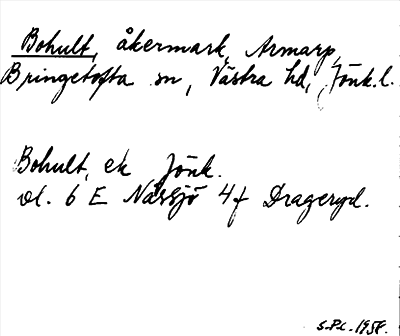 Bohult, åkermark, Armarp,
Bringetofta sn, Västra hd, Jönk.l.
Bohult, ek Jönk.
vl. 6 E Nässjö 4f Drageryd.
1958.